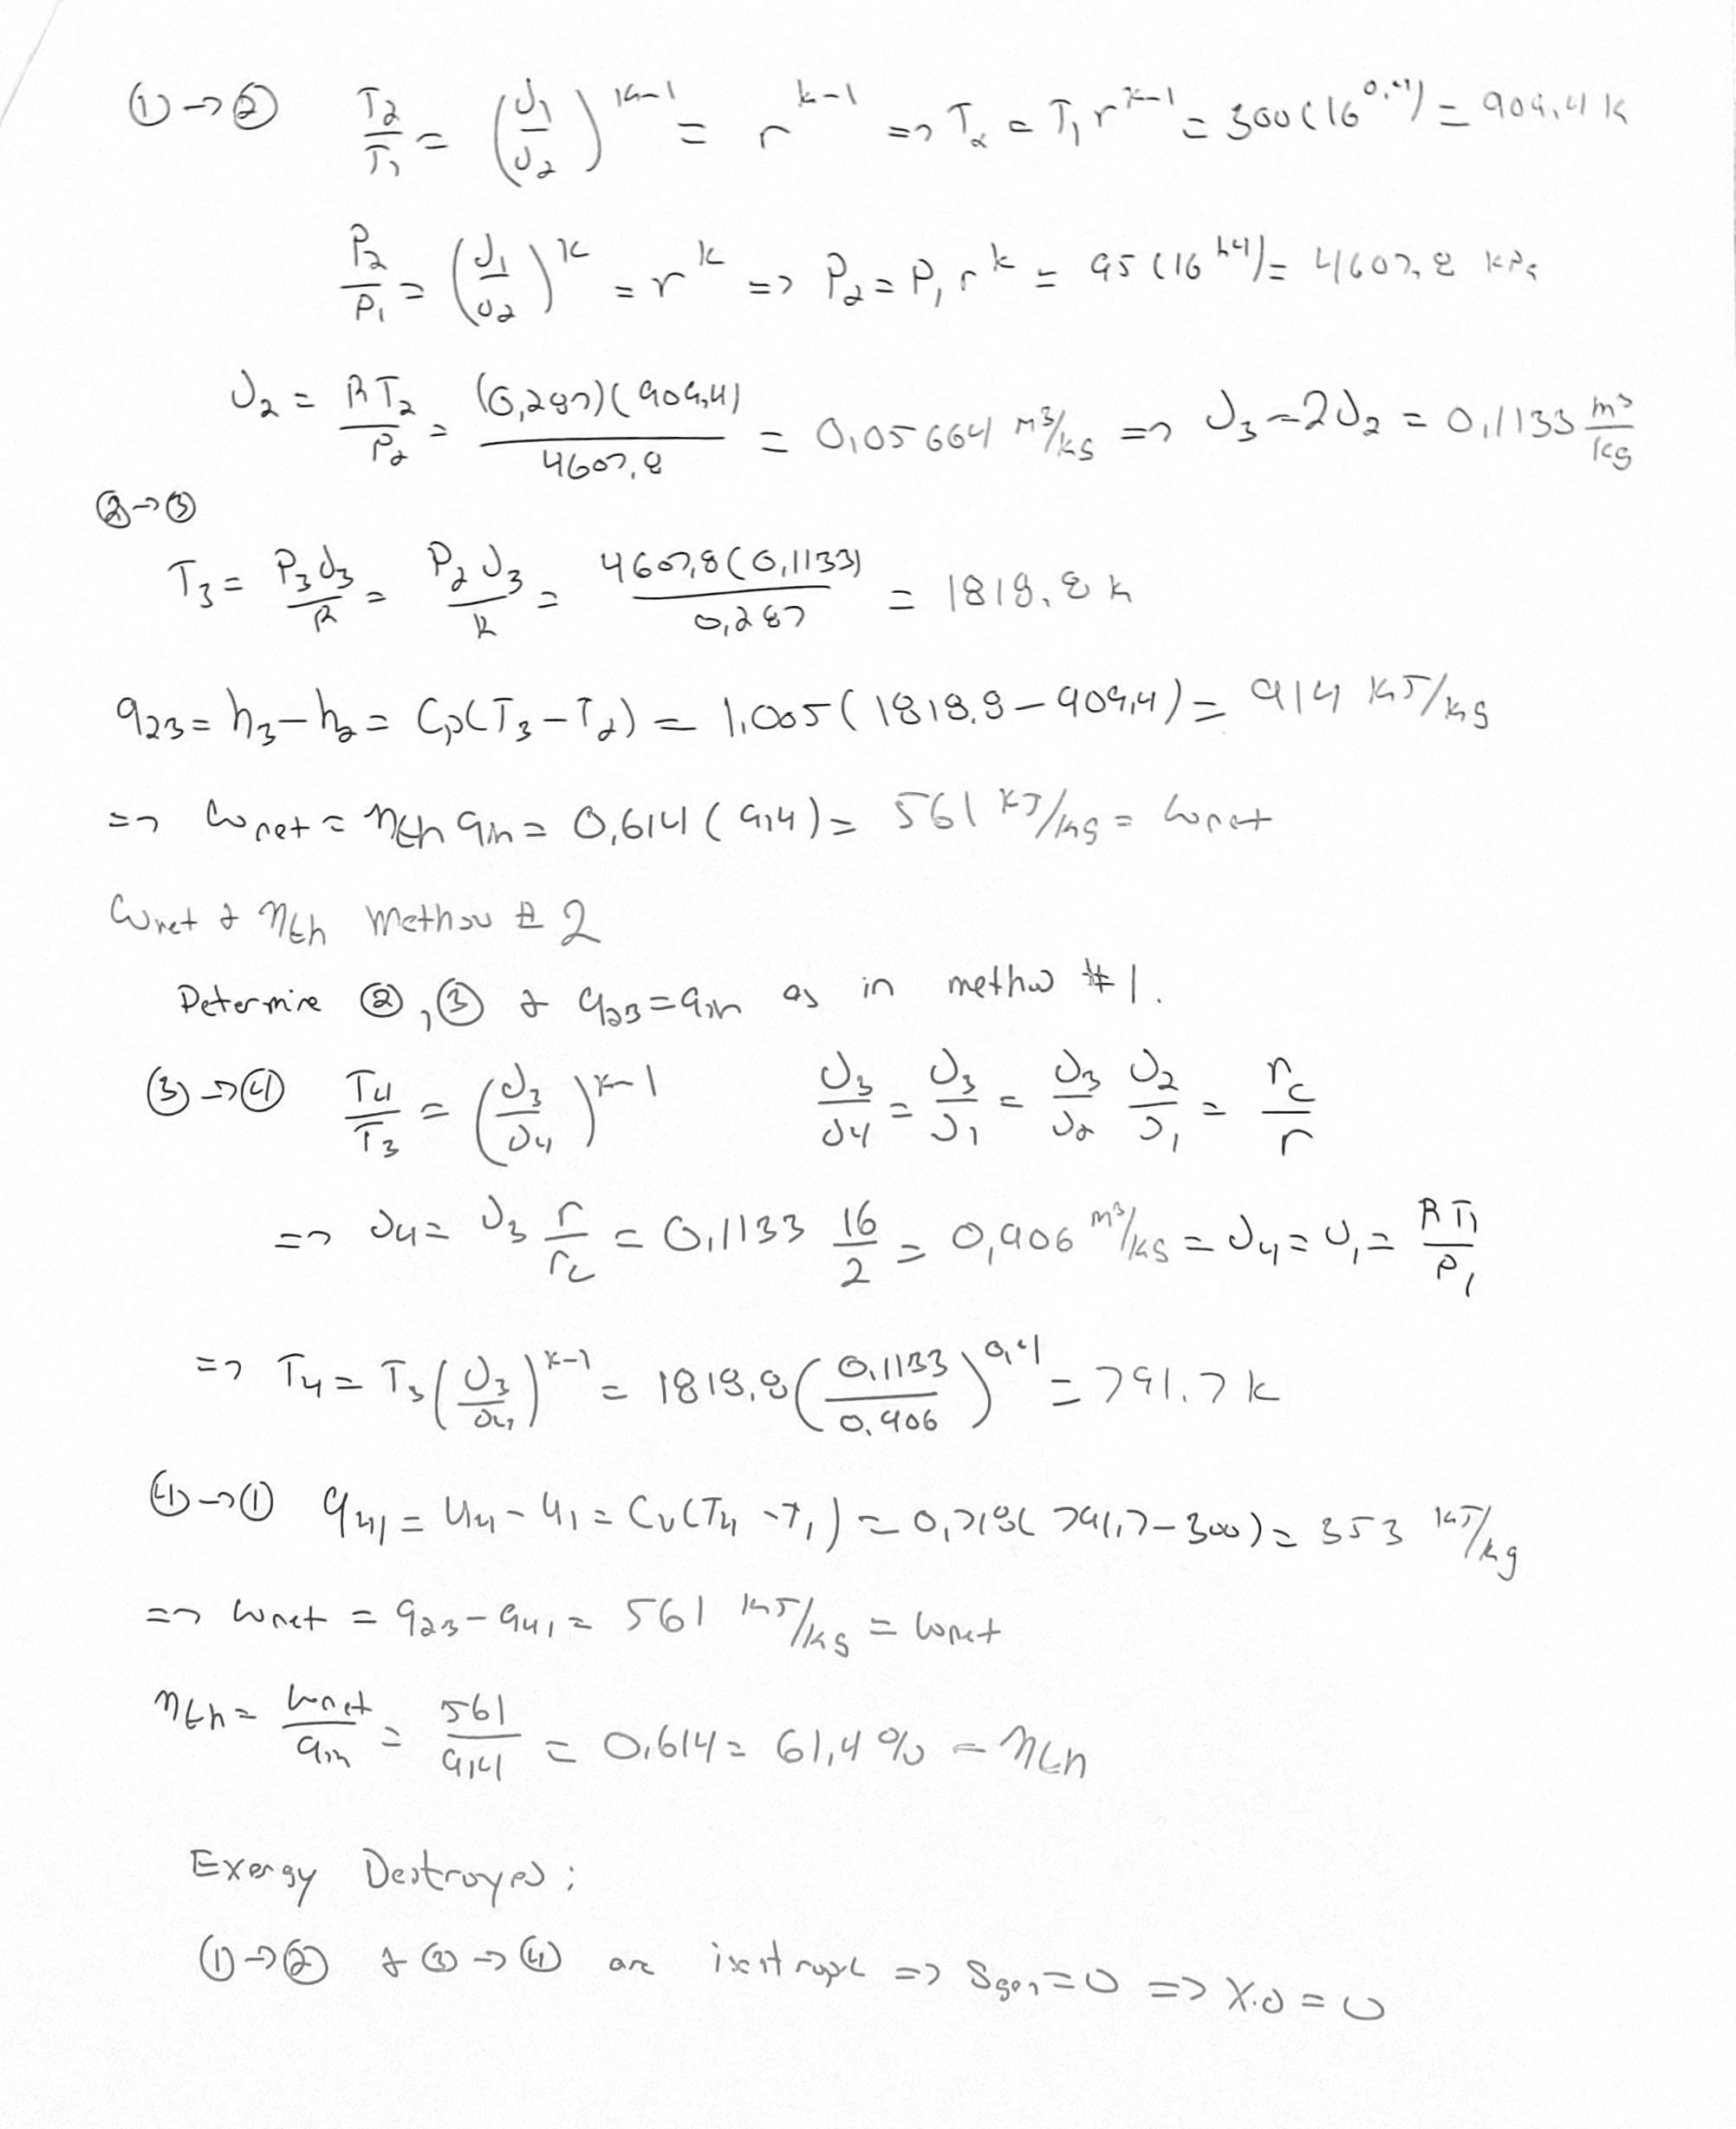 ① → ② T2/T1 = (υ1/υ2)^(k-1) = r^(k-1) => T2 = T1 r^(k-1) = 300(16^0.4) = 909,4 K
P2/P1 = (υ1/υ2)^k = r^k => P2 = P1 r^k = 95(16^1.4) = 4607,8 kPa
υ2 = RT2/P2 = (0,287)(909,4)/4607,8 = 0,05664 m³/kg => υ3 = 2υ2 = 0,1133 m³/kg
② → ③
T3 = P3υ3/R = P2υ3/R = 4607,8(0,1133)/0,287 = 1818,8 K
q23 = h3 - h2 = Cp(T3 - T2) = 1,005(1818.8 - 909,4) = 914 kJ/kg
=> wnet = ηth qin = 0,614(914) = 561 kJ/kg = wnet
wnet & ηth Method # 2
Determine ②, ③ & q23 = qin as in method #1.
③ → ④ T4/T3 = (υ3/υ4)^(k-1) υ3/υ4 = υ3/υ1 = υ3/υ2 υ2/υ1 = rc/r
=> υ4 = υ3 r/rc = 0,1133 16/2 = 0,906 m³/kg = υ4 = υ1 = RT1/P1
=> T4 = T3(υ3/υ4)^(k-1) = 1818,8(0,1133/0.906)^0,4 = 791.7 K
④ → ① q41 = u4 - u1 = Cv(T4 - T1) = 0,718(791,7 - 300) = 353 kJ/kg
=> wnet = q23 - q41 = 561 kJ/kg = wnet
ηth = wnet/qin = 561/914 = 0.614 = 61,4 % = ηth
Exergy Destroyed:
① → ② & ③ → ④ are isentropic => Sgen = 0 => X.D = 0